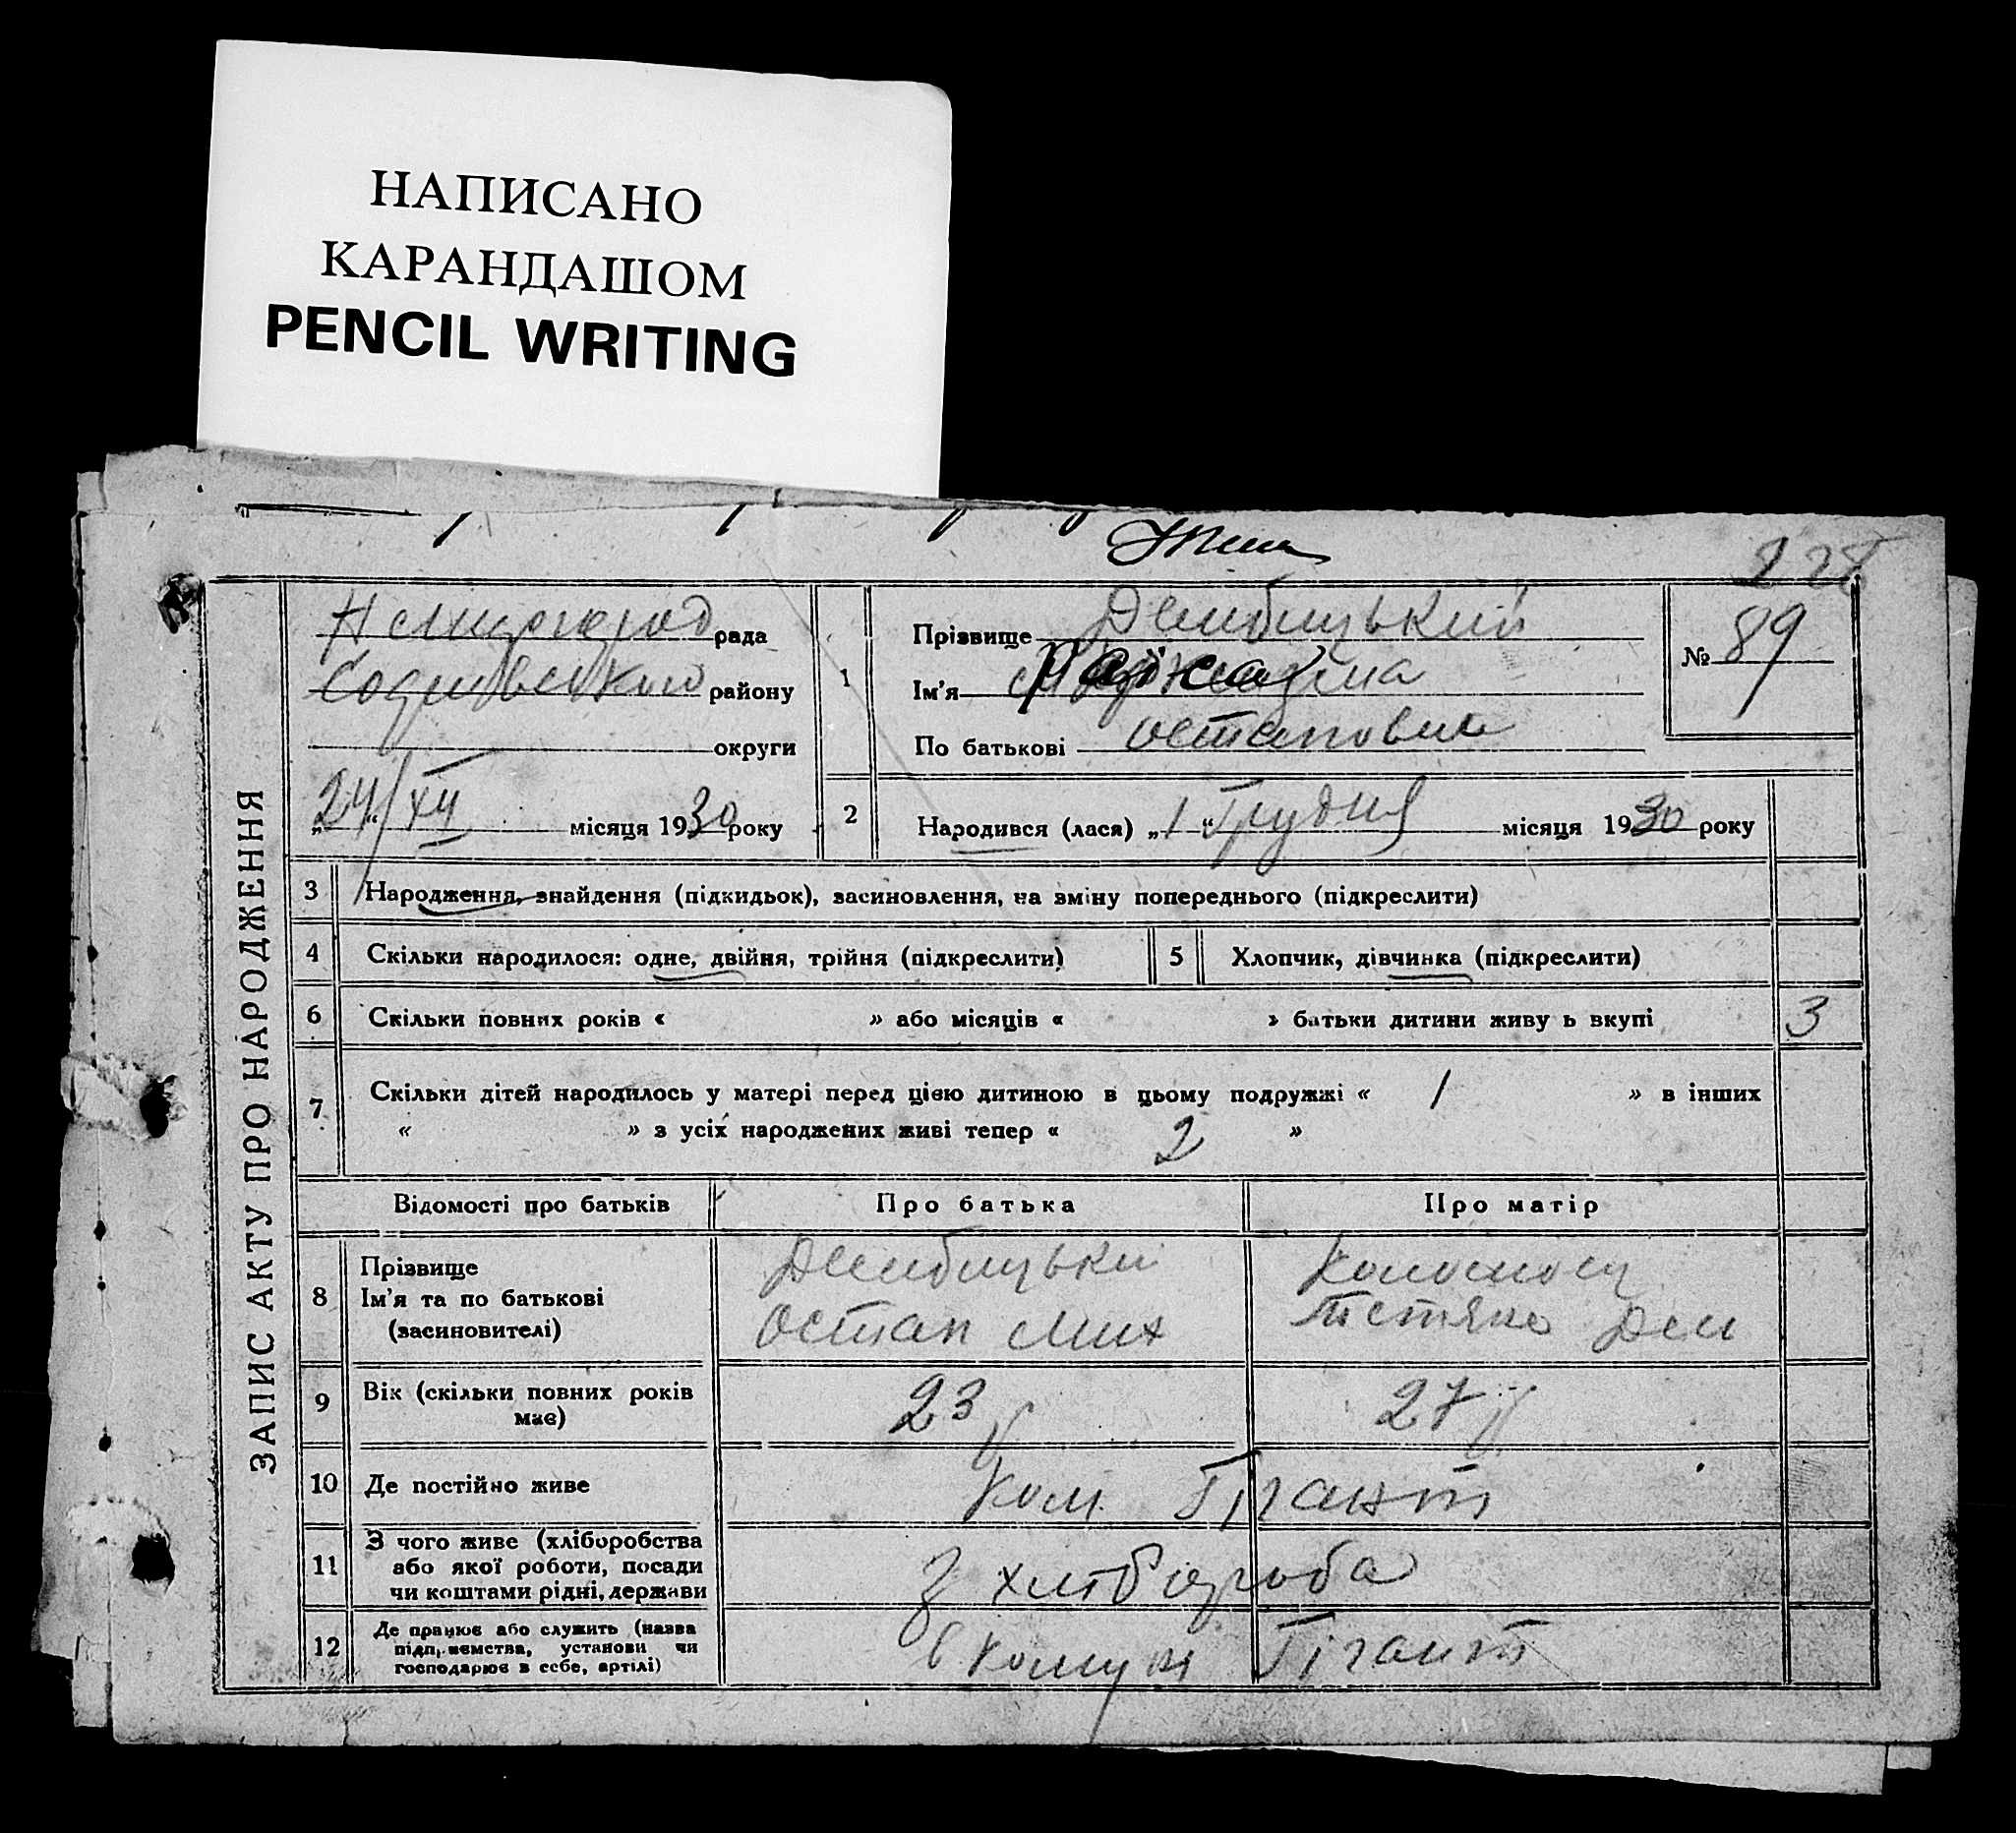 НАПИСАНО
КАРАНДАШОМ
PENCIL WRITING
228
ЗАПИС АКТУ ПРО НАРОДЖЕННЯ
рада
району
округи
„24“ XII місяця 1930 року
1
Прізвище Дембицький
Ім’я Раїса
По батькові Остапов
№ 89
2
Народився (лася) „1“ Грудня місяця 1930 року
3 Народження, знайдення (підкидьок), засиновлення, на зміну попереднього (підкреслити)
4 Скільки народилося: одне, двійня, трійня (підкреслити) 5 Хлопчик, дівчинка (підкреслити)
6 Скільки повних років « » або місяців « » батьки дитини живу ь вкупі 3
7 Скільки дітей народилось у матері перед цією дитиною в цьому подружжі « 1 » в інших
« » з усіх народжених живі тепер « 2 »
Відомості про батьків Про батька Про матір
8 Прізвище
Ім’я та по батькові
(засиновителі)
Дембицьки
Остап Мих
Дем
9 Вік (скільки повних років
має)
23 27
10 Де постійно живе Ком. Гігант
11 З чого живе (хліборобства
або якої роботи, посади
чи коштами рідні, держави
З хлібороба
12 Де працює або служить (назва
підприємства, установи чи
господарює в себе, артілі)
В Комун Гігант